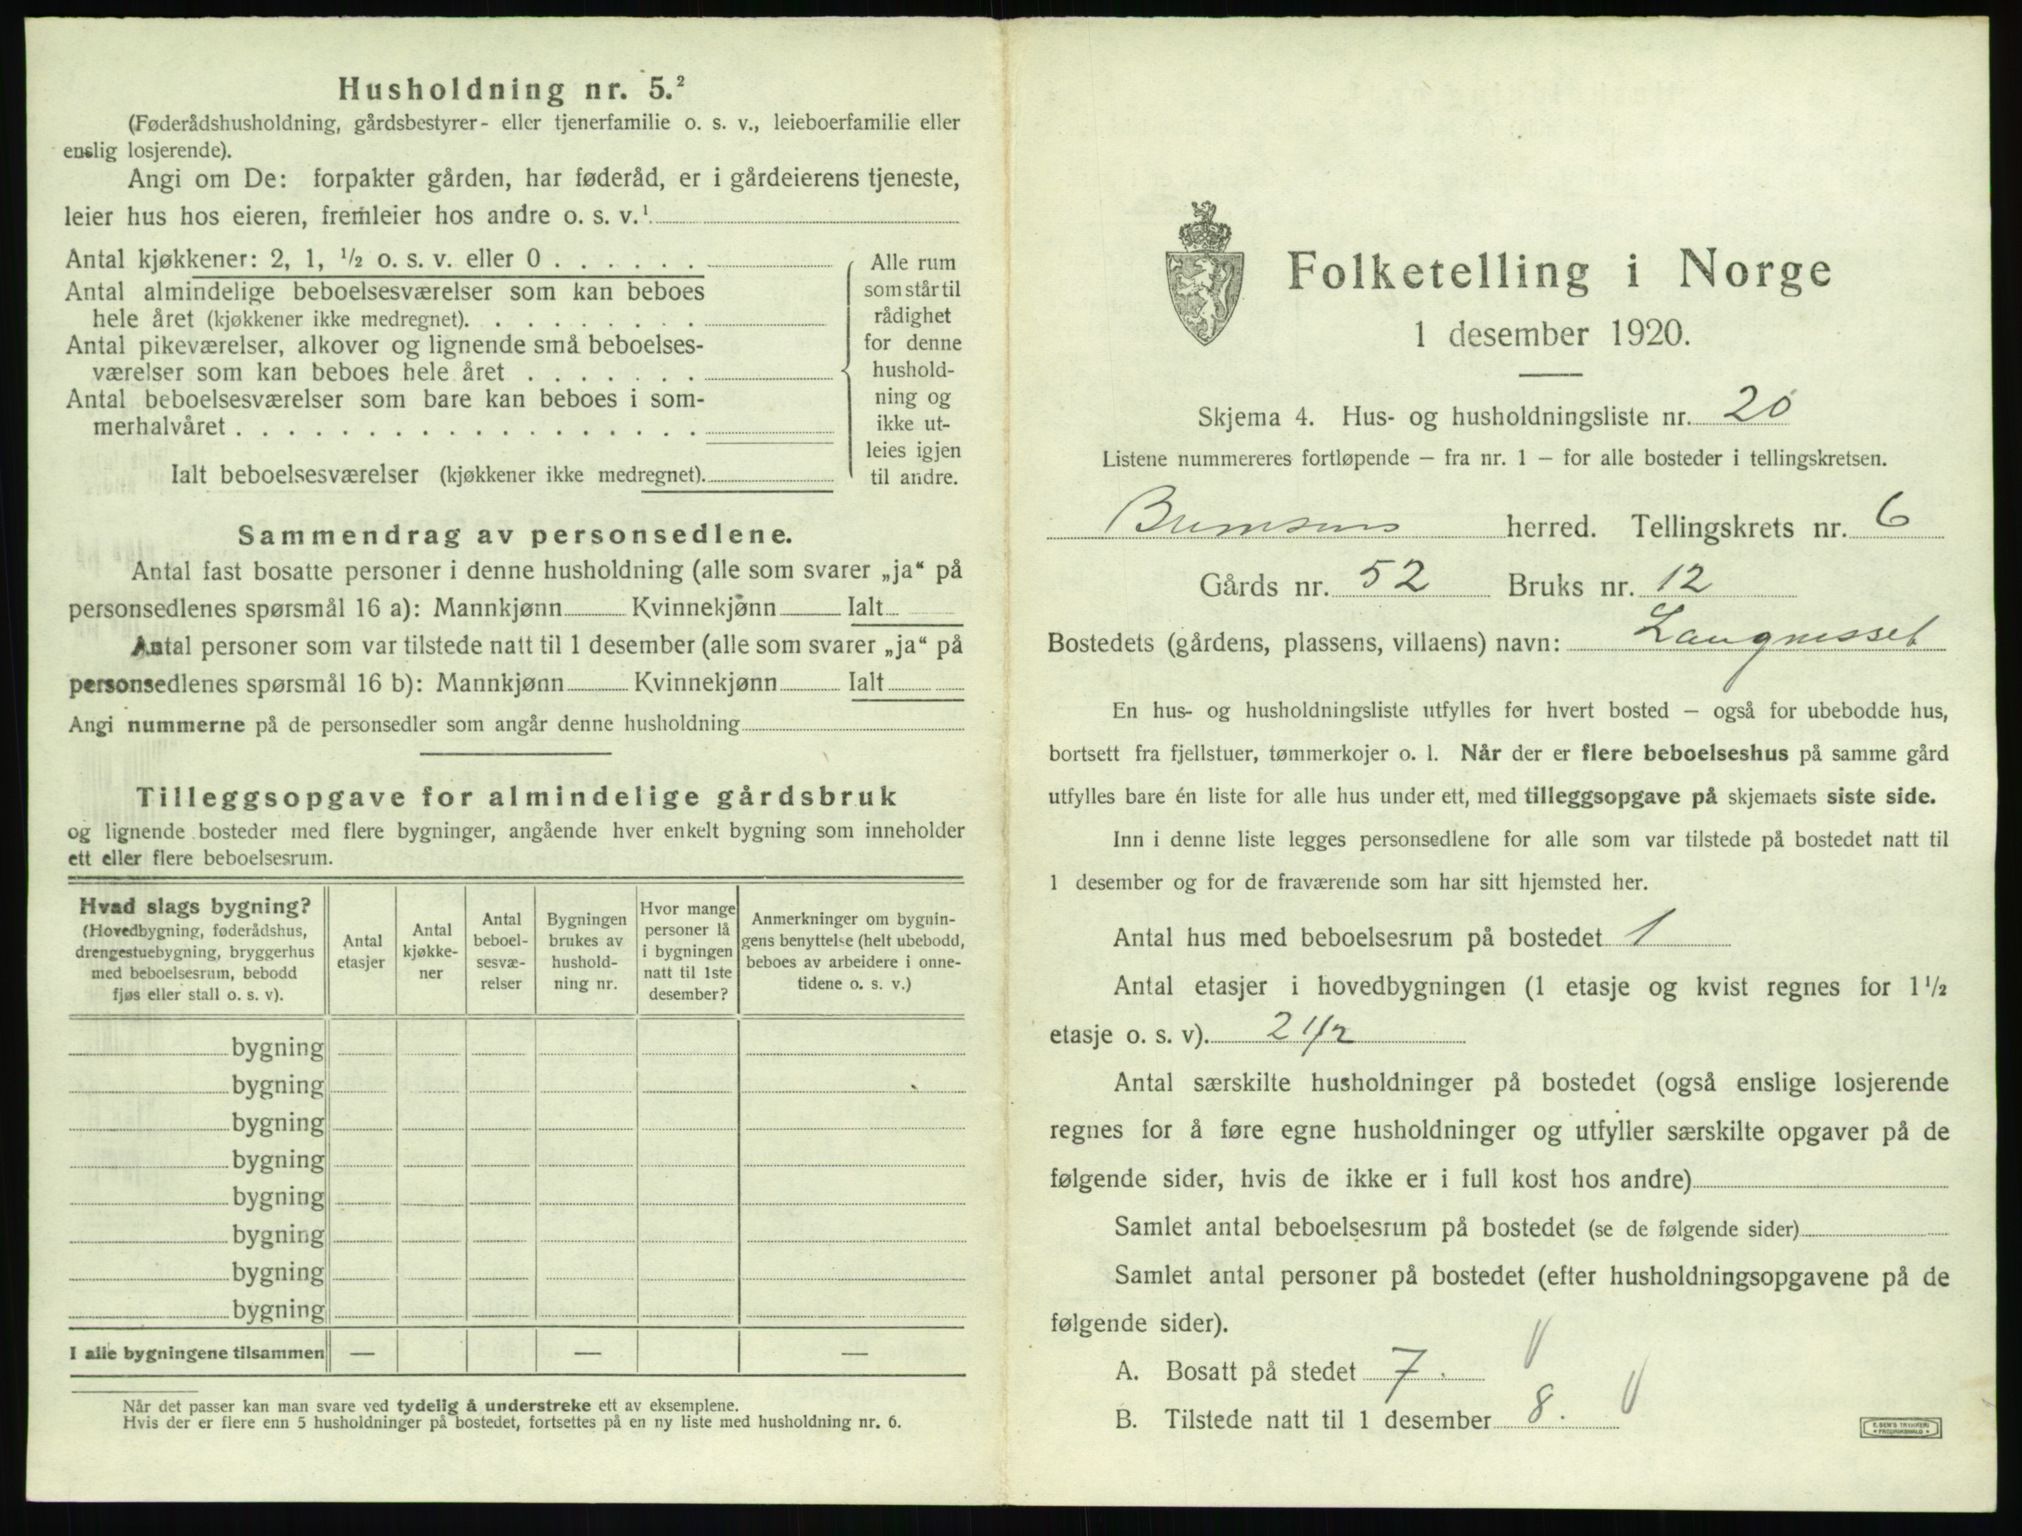 Husholdning nr. 5.²
(Føderådshusholdning, gårdsbestyrer- eller tjenerfamilie o. s. v., leieboerfamilie eller
enslig losjerende).
Angi om De: forpakter gården, har føderåd, er i gårdeierens tjeneste,
leier hus hos eieren, fremleier hos andre o. s. v.¹
Antal kjøkkener: 2, 1, ½ o. s. v. eller 0 . . . . . .
Antal almindelige beboelsesværelser som kan beboes
hele året (kjøkkener ikke medregnet). . . . . . . . .
Antal pikeværelser, alkover og lignende små beboelses-
værelser som kan beboes hele året . . . . . . .
Antal beboelsesværelser som bare kan beboes i som-
merhalvåret . . . . . . . . . . . . . . . . . .
Ialt beboelsesværelser (kjøkkener ikke medregnet).
Alle rum
som står til
rådighet
for denne
hushold-
ning og
ikke ut-
leies igjen
til andre.
Sammendrag av personsedlene.
Antal fast bosatte personer i denne husholdning (alle som svarer „ja“ på
personsedlenes spørsmål 16 a): Mannkjønn Kvinnekjønn Ialt
Antal personer som var tilstede natt til 1 desember (alle som svarer „ja“ på
personsedlenes spørsmål 16 b): Mannkjønn Kvinnekjønn Ialt
Angi nummerne på de personsedler som angår denne husholdning
Tilleggsopgave for almindelige gårdsbruk
og lignende bosteder med flere bygninger, angående hver enkelt bygning som inneholder
ett eller flere beboelsesrum.
Hvad slags bygning?
(Hovedbygning, føderådshus,
drengestuebygning, bryggerhus
med beboelsesrum, bebodd
fjøs eller stall o. s. v).
Antal
etasjer
Antal
kjøkke-
ner
Antal
beboel-
sesvæ-
relser
Bygningen
brukes av
hushold-
ning nr.
Hvor mange
personer lå
i bygningen
natt til 1ste
desember?
Anmerkninger om bygnin-
gens benyttelse (helt ubebodd,
beboes av arbeidere i onne-
tidene o. s. v.)
bygning
bygning
bygning
bygning
bygning
bygning
bygning
bygning
I alle bygningene tilsammen — — —
Når det passer kan man svare ved tydelig å understreke ett av eksemplene.
Hvis der er flere enn 5 husholdninger på bostedet, fortsettes på en ny liste med husholdning nr. 6.
Folketelling i Norge
1 desember 1920.
Skjema 4. Hus- og husholdningsliste nr. 20
Listene nummereres fortløpende – fra nr. 1 – for alle bosteder i tellingskretsen.
Bremsnes herred. Tellingskrets nr. 6
Gårds nr. 52 Bruks nr. 12
Bostedets (gårdens, plassens, villaens) navn: Langnesset
En hus- og husholdningsliste utfylles for hvert bosted – også for ubebodde hus,
bortsett fra fjellstuer, tømmerkojer o. l. Når der er flere beboelseshus på samme gård
utfylles bare én liste for alle hus under ett, med tilleggsopgave på skjemaets siste side.
Inn i denne liste legges personsedlene for alle som var tilstede på bostedet natt til
1 desember og for de fraværende som har sitt hjemsted her.
Antal hus med beboelsesrum på bostedet 1
Antal etasjer i hovedbygningen (1 etasje og kvist regnes for 1½
etasje o. s. v). 2 1/2
Antal særskilte husholdninger på bostedet (også enslige losjerende
regnes for å føre egne husholdninger og utfyller særskilte opgaver på de
følgende sider, hvis de ikke er i full kost hos andre)
Samlet antal beboelsesrum på bostedet (se de følgende sider)
Samlet antal personer på bostedet (efter husholdningsopgavene på de
følgende sider).
A. Bosatt på stedet 7.
B. Tilstede natt til 1 desember 8.
E. SEM'S TRYKKERI
FREDRIKSHALD